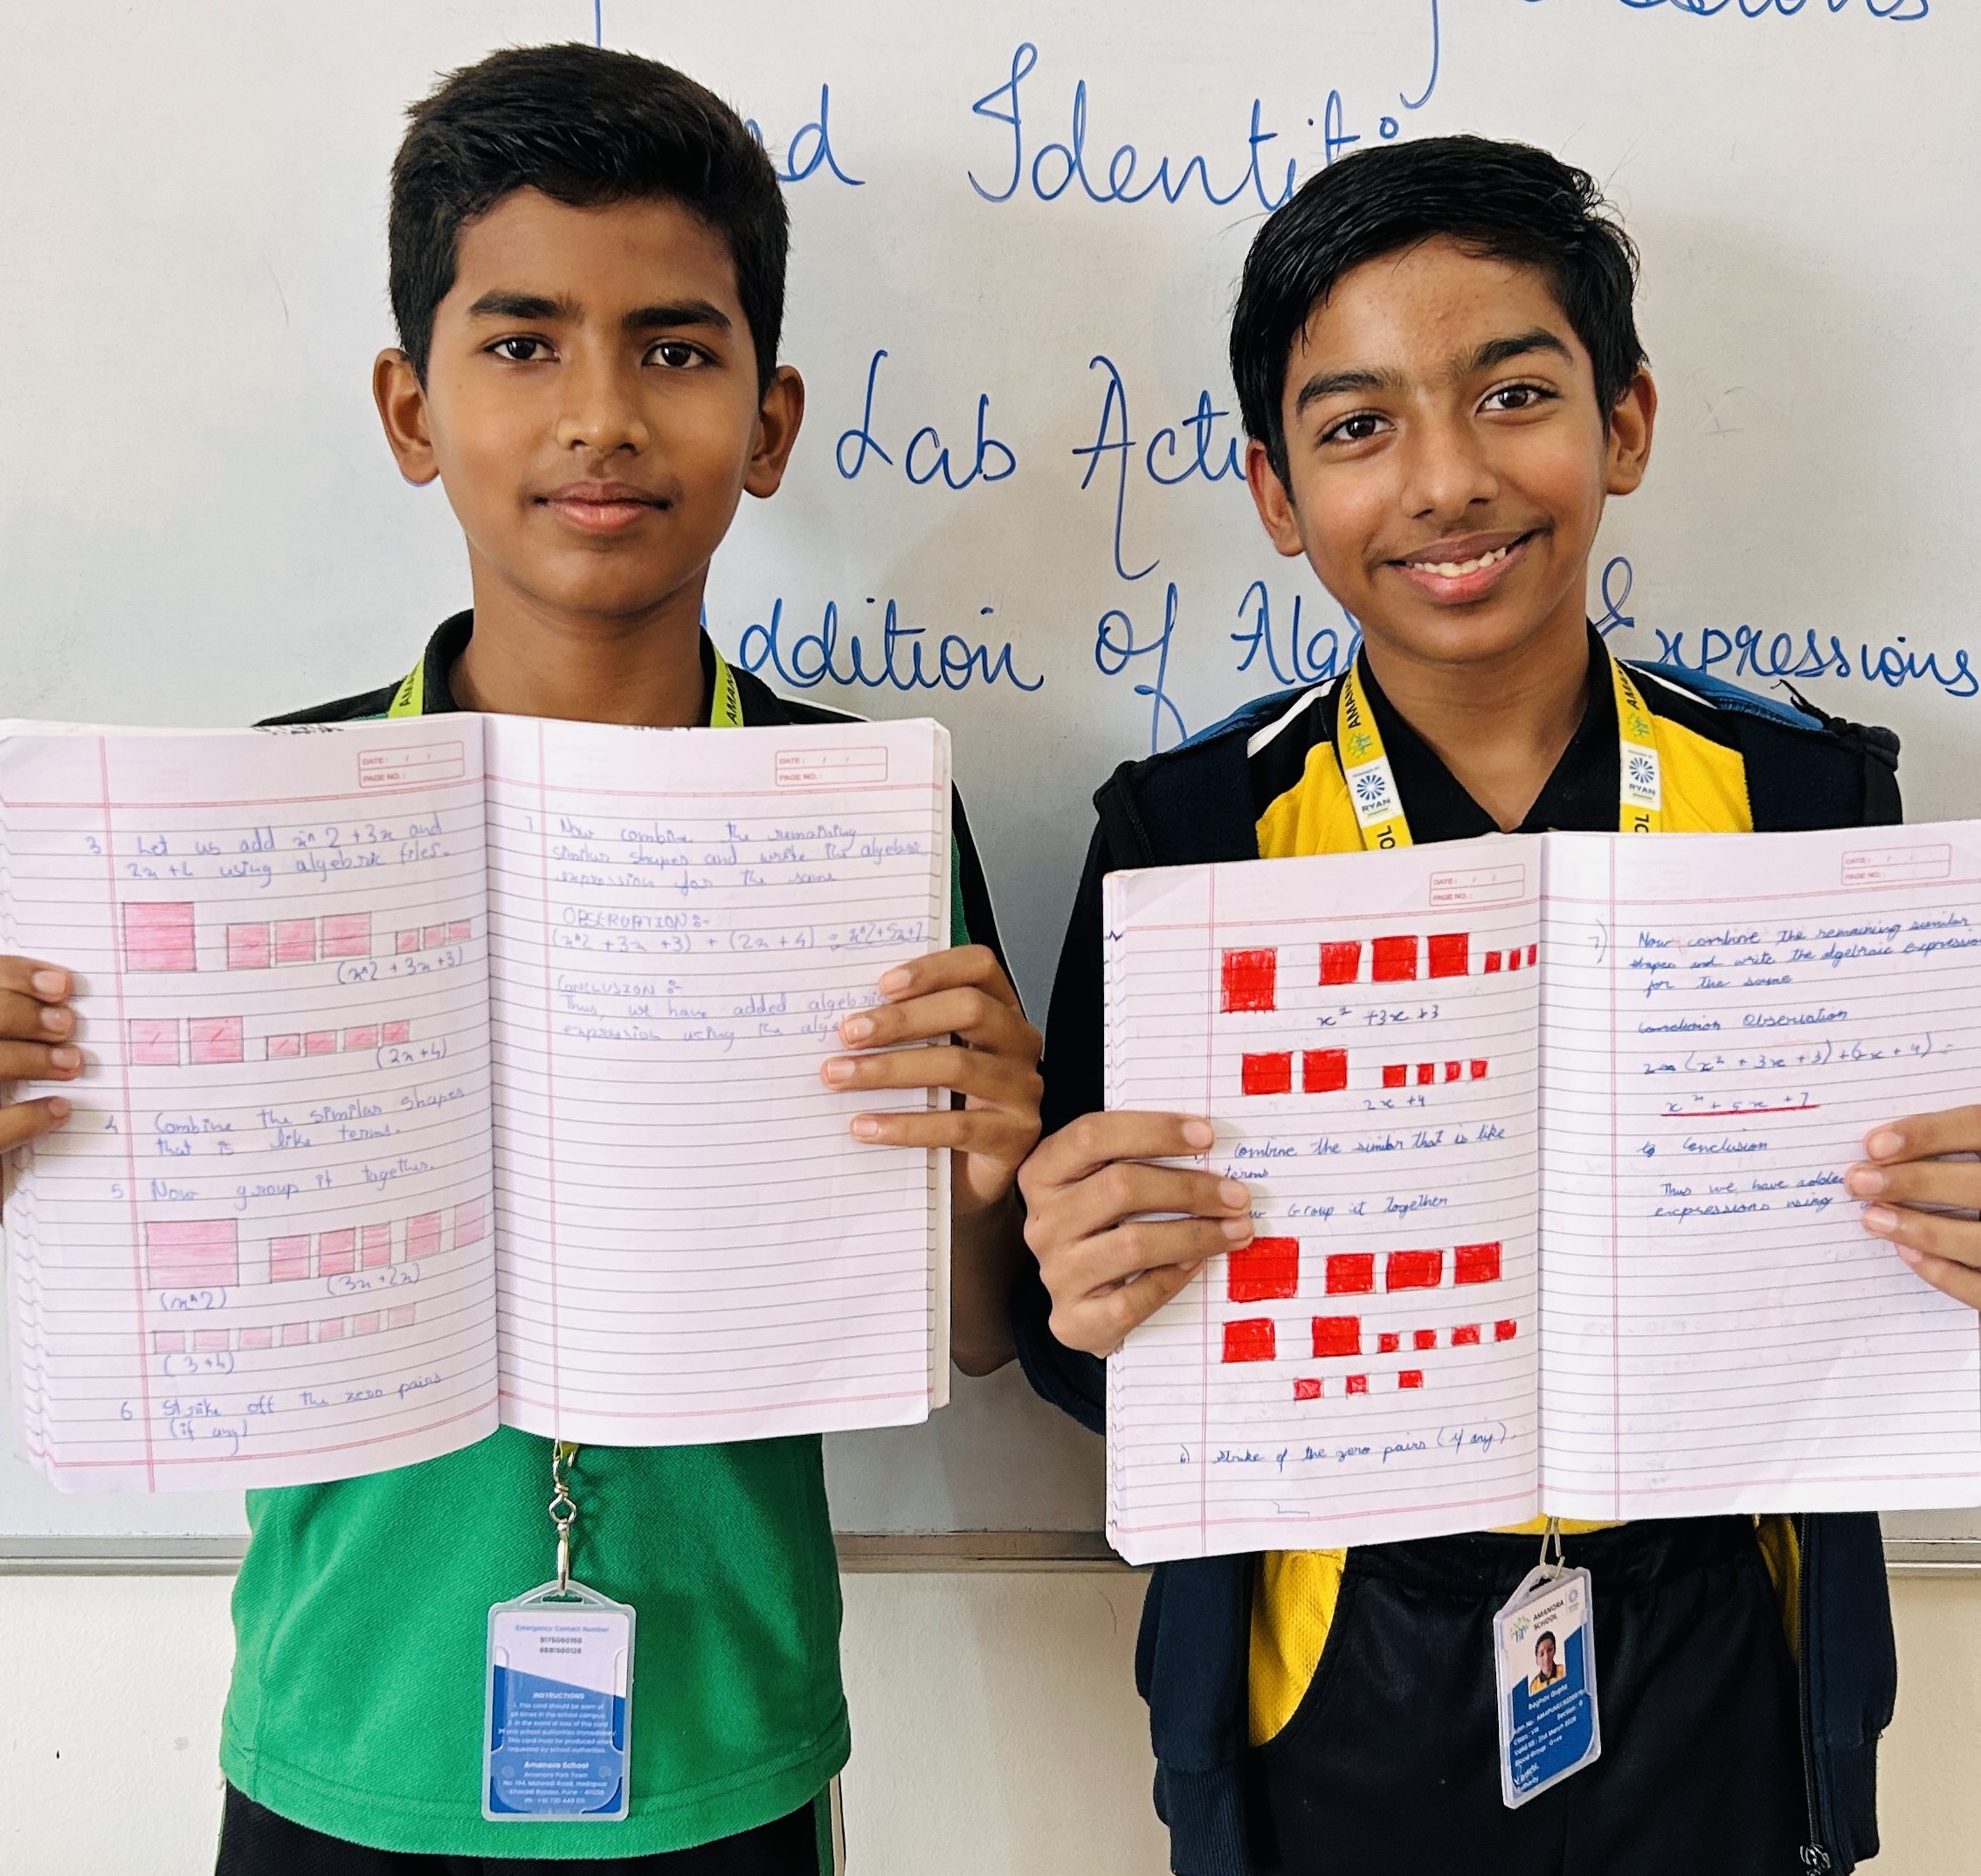 nd Identit
Lab Acti
ddition of Alg Expressions
AMAN
AMAN
DATE: / /
PAGE NO.:
3 Let us add x^2 +3x and
2x +4 using algebric tiles.
(x^2 +3x +3)
(2x+4)
4 Combine the similar shapes
that is like terms.
5 Now group it together.
(x^2)
(3x+2x)
(3+4)
6 Strike off the zero pairs
(if any)
DATE: / /
PAGE NO.:
7 Now combine the remaining
similar shapes and write the algebric
expression for the same
OBSERVATION:-
(x^2 + 3x +3) + (2x + 4) = x^2+5x+7
CONCLUSION:-
Thus, we have added algebric
expression using the alge
AMAN
RYAN
AMAN
RYAN
OL
OL
DATE: / /
PAGE NO.:
x² +3x +3
2x +4
Combine the similar that is like
terms
w Group it together
6) strike of the zero pairs (if any).
DATE: / /
PAGE NO.:
7) Now combine the remaining similar
shapes and write the algebraic expression
for the same
Observation
(x² + 3x +3) +(2x + 4) =
x² + 5x +7
Conclusion
Thus we have added
expressions using
Emergency Contact Number
INSTRUCTIONS
Amanora School
Amanora Park Town
AMANORA
SCHOOL